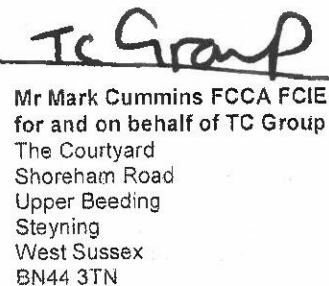 TC Group
Mr Mark Cummins FCCA FCIE
for and on behalf of TC Group
The Courtyard
Shoreham Road
Upper Beeding
Steyning
West Sussex
BN44 3TN